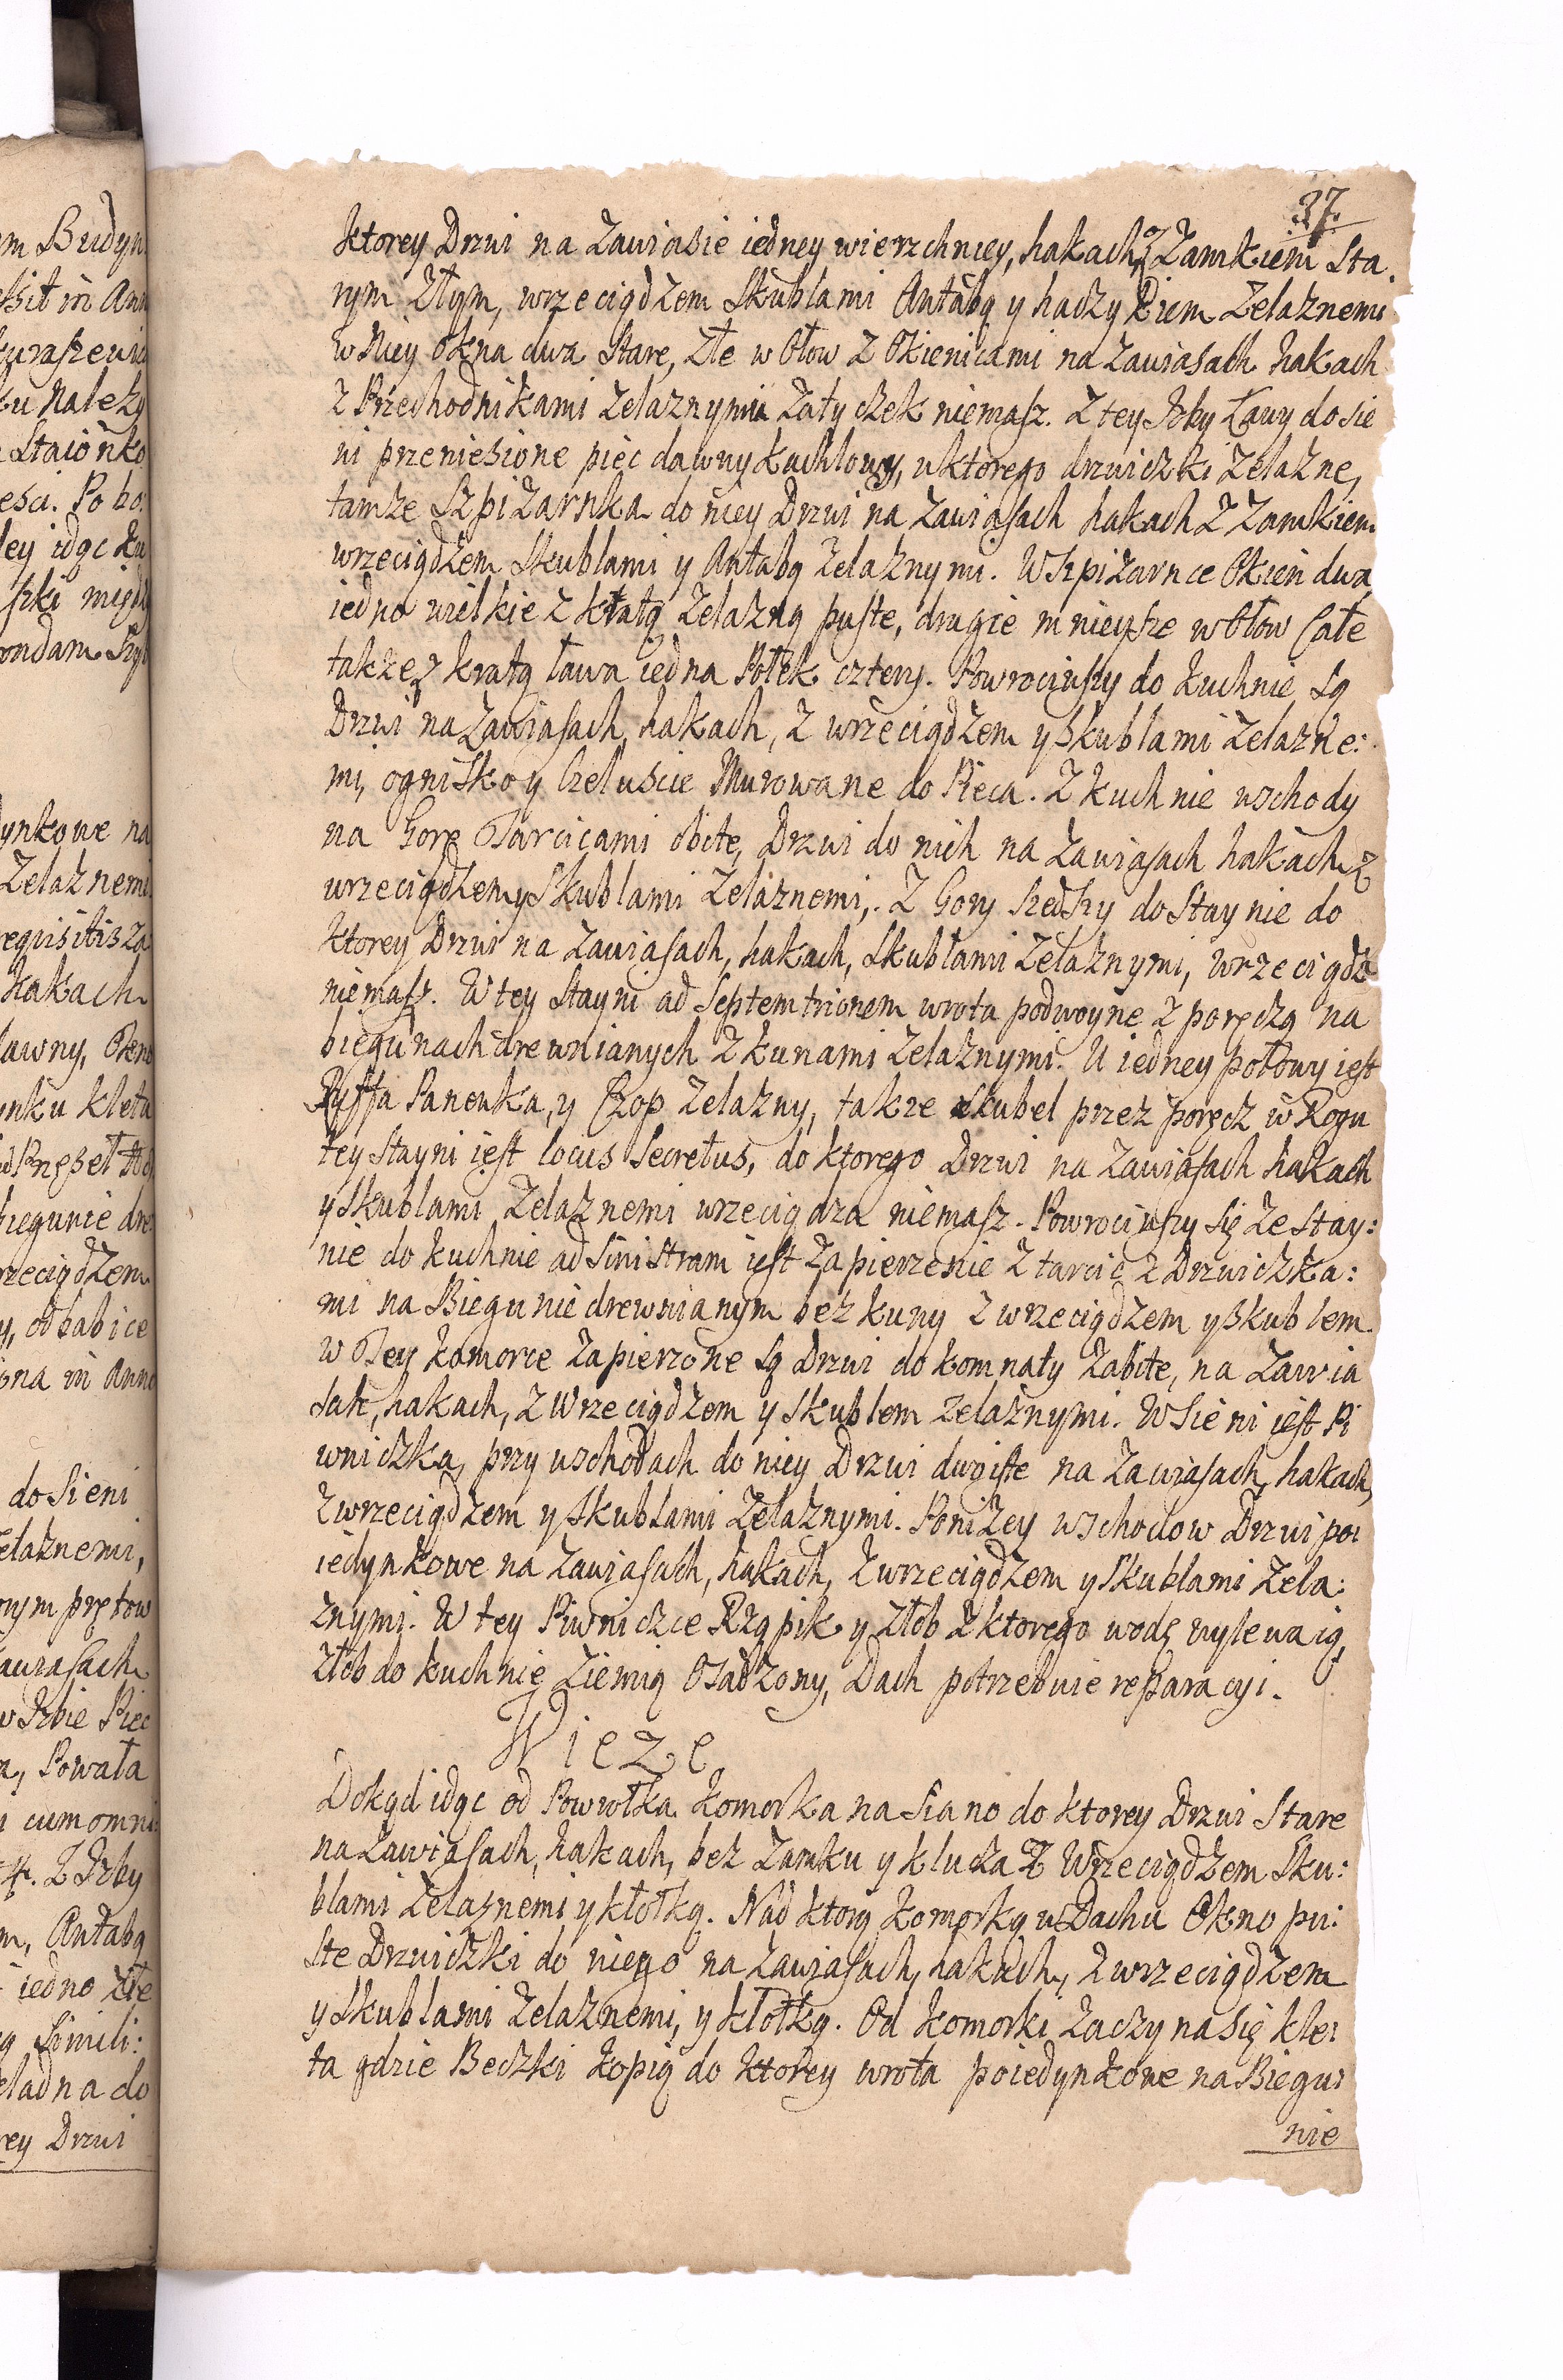 37.
ktorey Drzwi na zawiasie iedney wierzchniey, hakach, z Zamkiem Sta.
rym Złym, wrzeciądzem Skublami Antabą y haczykiem Zelaznemi
w Niey okna dwa Stare, złe w Ołow z Okienicami na zawiasach hakach
z Przechodnikami Zelaznymi zatyczek niemasz. z tey Izby Ławy do sie
ni przeniesione piec dawny kachlowy, u ktorego drzwiczki zelazne,
tamze Szpizarnka do niey Drzwi na zawiasach hakach z Zamkiem
wrzeciądzem Skublami y Antabą Zelaznymi. W Szpizarnce Okien dwa
iedno wielkie z kratą Zelazną puste, drugie mnieysze w Ołow Całe
takze z kratą ława iedna Połek cztery. Powrociwszy do kuchnie są
Drzwi na zawiasach, hakach, z wrzeciądzem y Skublami Zelazne:
mi, ognisko y Czeluscie Murowane do Pieca. Z kuchnie wschody
na Gorę Tarcicami obite, Drzwi do nich na zawiasach hakach z
wrzeciądzem y Skublami Zelaznemi,. Z Gory szedszy do Staynie do
ktorey Drzwi na zawiasach, hakach, Skublami Zelaznymi, wrzeciądza
niemasz. W tey Stayni ad Septemtrionem wrota podwoyne z poręczą na
biegunach drewnianych z kunami Zelaznymi. U iedney połowy iest
Ryffa Panewka, y Czop Zelazny, takze Skubel przez poręcz w Rogu
tey Stayni iest locus Secretus, do ktorego Drzwi na zawiasach hakach
y Skublami Zelaznemi wrzeciądza niemasz. Powrociwszy się ze Stay:
nie do kuchnie ad Sinistram iest zapierzenie z tarcic z Drzwiczka:
mi na Biegunie drewnianym bez kuny z wrzeciądzem y Skublem.
w Tey komorce zapierzone są Drzwi do komnaty zabite, na zawia
sach, hakach, z wrzeciądzem y Skublem zelaznymi. W Sieni iest Pi
wniczka, przy wschodach do niey Drzwi dwoiste na zawiasach, hakach,
z wrzeciądzem y Skublami Zelaznymi. Ponizey wschodow Drzwi po:
iedynkowe na zawiasach, hakach, z wrzeciądzem y Skublami Zela:
znymi. W tey Piwniczce Rząpik y złob z ktorego wodę wylewaią,
złob do kuchnię ziemią Osadzony, Dach potrzebuie reparacyi.
Wieze
Dokąd idąc od Powrotka komorka na Siano do ktorey Drzwi Stare
na zawiasach, hakach, bez zamku y klucza z Wrzeciądzem Sku:
blami Zelaznemi y kłotką. Nad ktorą komorką w Dachu Okno pu:
ste Drzwiczki do niego na zawiasach, hakach, z wrzeciądzem
y Skublami Zelaznemi, y kłotką. Od komorki zaczyna się kle:
ta gdzie Beczki kopią do ktorey wrota poiedynkowe na Biegu:
nie